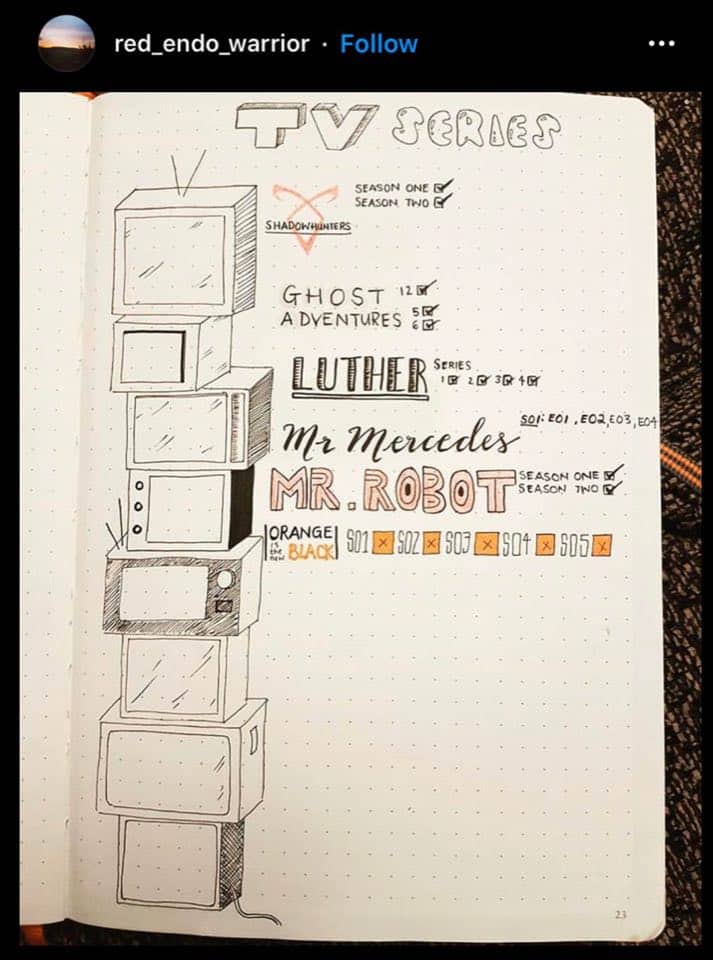 red_endo_warrior · Follow
TV SERIES
SHADOWHUNTERS
SEASON ONE
SEASON TWO
GHOST 12
ADVENTURES 5
6
LUTHER SERIES
1 2 3 4
Mr Mercedes S01: E01, E02, E03, E04
MR. ROBOT SEASON ONE
SEASON TWO
ORANGE
is the new BLACK S01 S02 S03 S04 S05
23